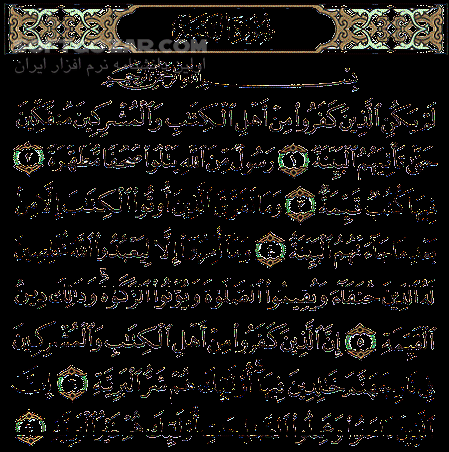 سورة البينة
بسم الله الرحمن الرحيم
لَمْ يَكُنِ الَّذِينَ كَفَرُوا مِنْ أَهْلِ الْكِتَابِ وَالْمُشْرِكِينَ مُنفَكِّينَ
حَتَّىٰ تَأْتِيَهُمُ الْبَيِّنَةُ ١ رَسُولٌ مِّنَ اللَّهِ يَتْلُو صُحُفًا مُّطَهَّرَةً ٢
فِيهَا كُتُبٌ قَيِّمَةٌ ٣ وَمَا تَفَرَّقَ الَّذِينَ أُوتُوا الْكِتَابَ إِلَّا مِن
بَعْدِ مَا جَاءَتْهُمُ الْبَيِّنَةُ ٤ وَمَا أُمِرُوا إِلَّا لِيَعْبُدُوا اللَّهَ مُخْلِصِينَ
لَهُ الدِّينَ حُنَفَاءَ وَيُقِيمُوا الصَّلَاةَ وَيُؤْتُوا الزَّكَاةَ وَذَٰلِكَ دِينُ
الْقَيِّمَةِ ٥ إِنَّ الَّذِينَ كَفَرُوا مِنْ أَهْلِ الْكِتَابِ وَالْمُشْرِكِينَ
فِي نَارِ جَهَنَّمَ خَالِدِينَ فِيهَا أُولَٰئِكَ هُمْ شَرُّ الْبَرِيَّةِ ٦ إِنَّ
الَّذِينَ آمَنُوا وَعَمِلُوا الصَّالِحَاتِ أُولَٰئِكَ هُمْ خَيْرُ الْبَرِيَّةِ ٧